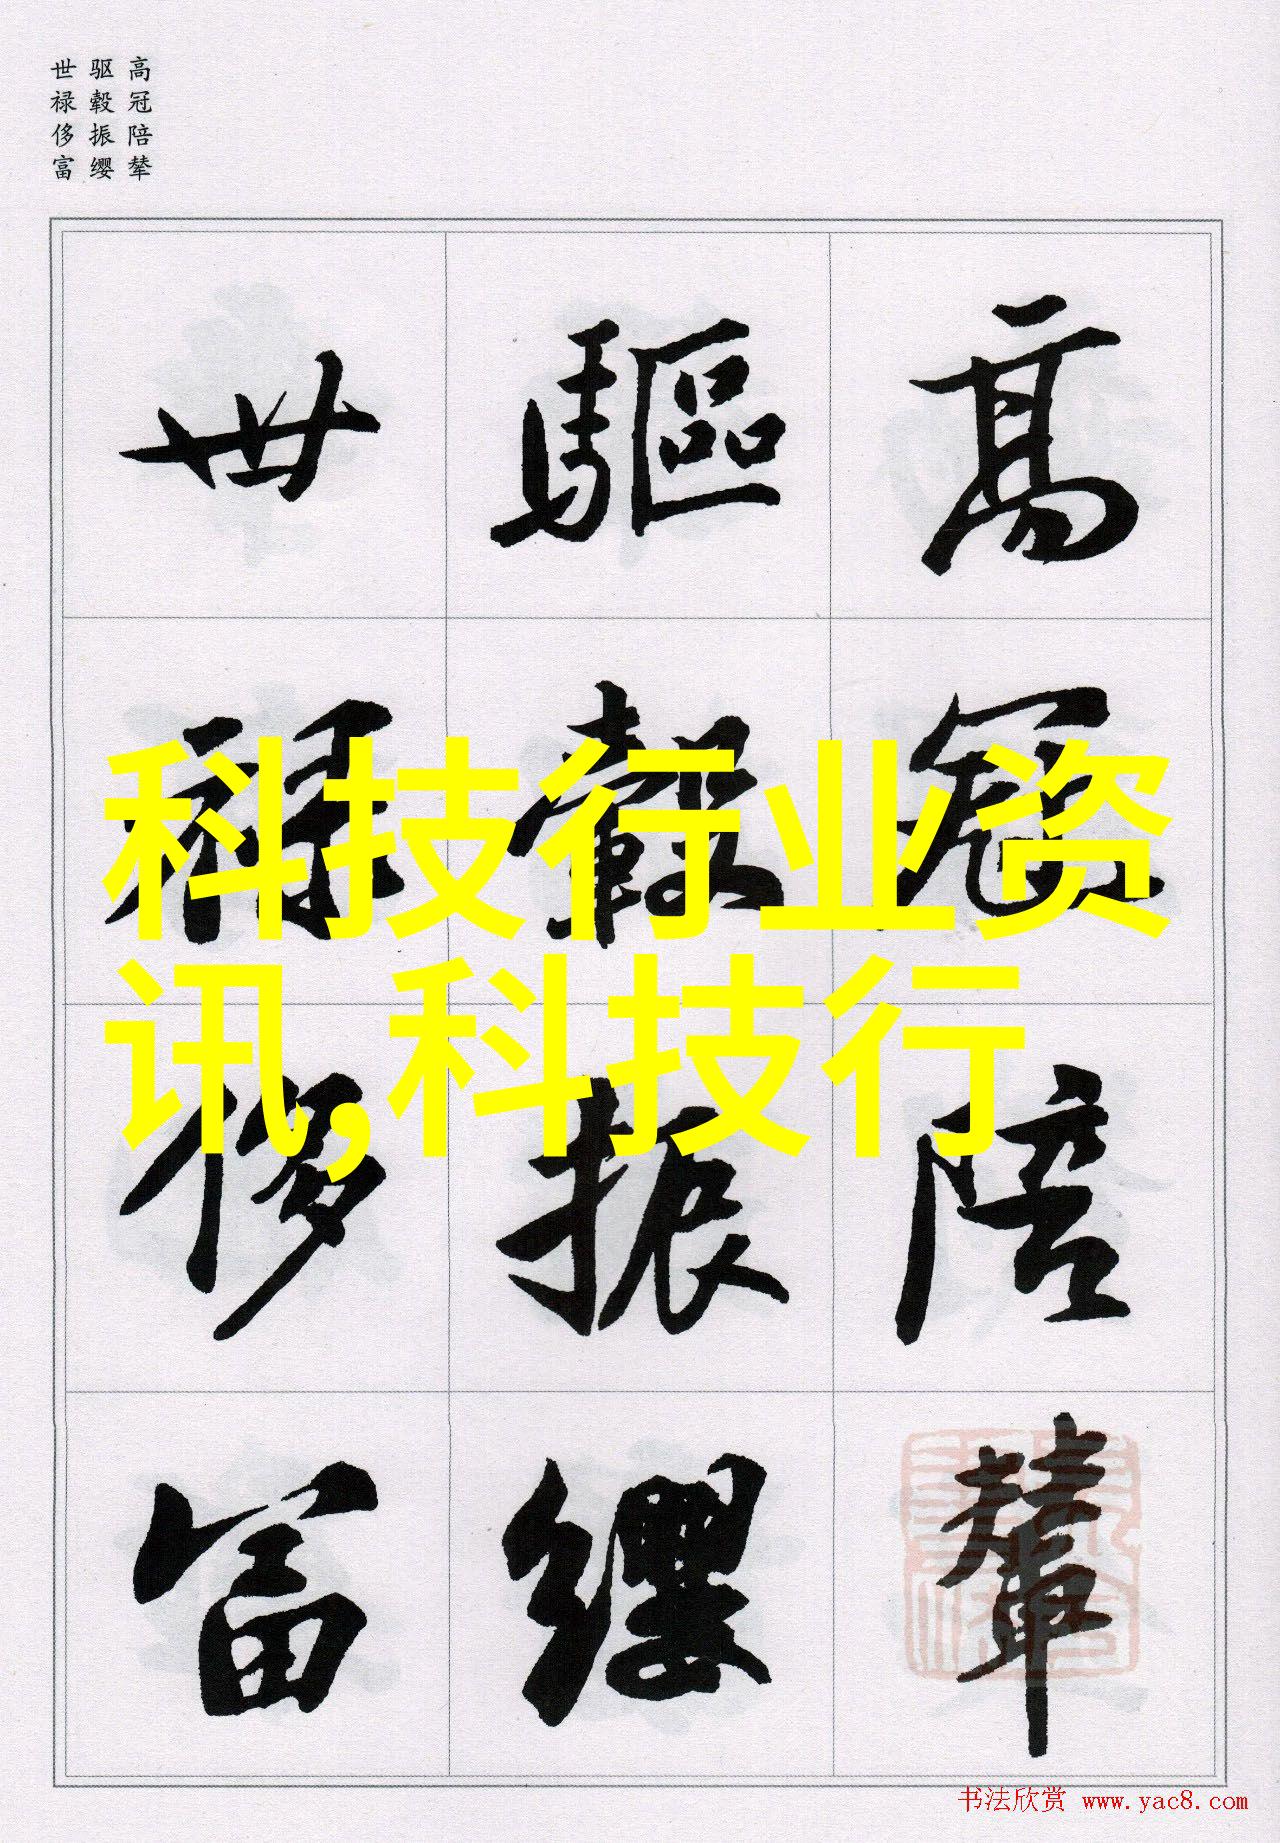 高冠陪辇
驱毂振缨
世禄侈富
高冠陪輦
驅轂振纓
世禄侈富
科技行业资
讯,科技行
书法欣赏 www.yac8.com